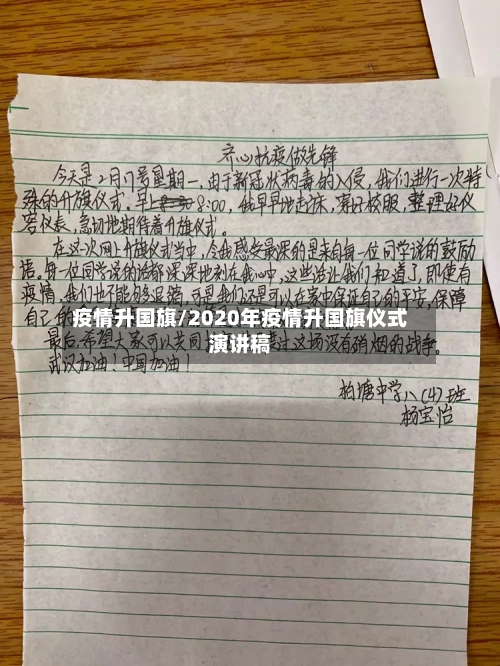 齐心抗疫做先锋
今天是2月17号星期一,由于新冠状病毒的入侵,我们进行一次特
殊的升旗仪式。早上8:00,我早早地起床,穿好校服,整理好仪
容仪表,急切地期待着升旗仪式。
在这次网上升旗仪式当中,令我感受最深的是来自每一位同学说的鼓励
语。每一位同学说的话都深深地刻在我心中,这些话让我们知道了,即使有
疫情,我们也不能够退缩,可是我们还是可以在家中保证自己的平安,保障
自己的
疫情升国旗/2020年疫情升国旗仪式
演讲稿
最后,希望大家可以共同 过这场没有硝烟的战争。
武汉加油!中国加油!
柏塘中学八(4)班
杨宝怡